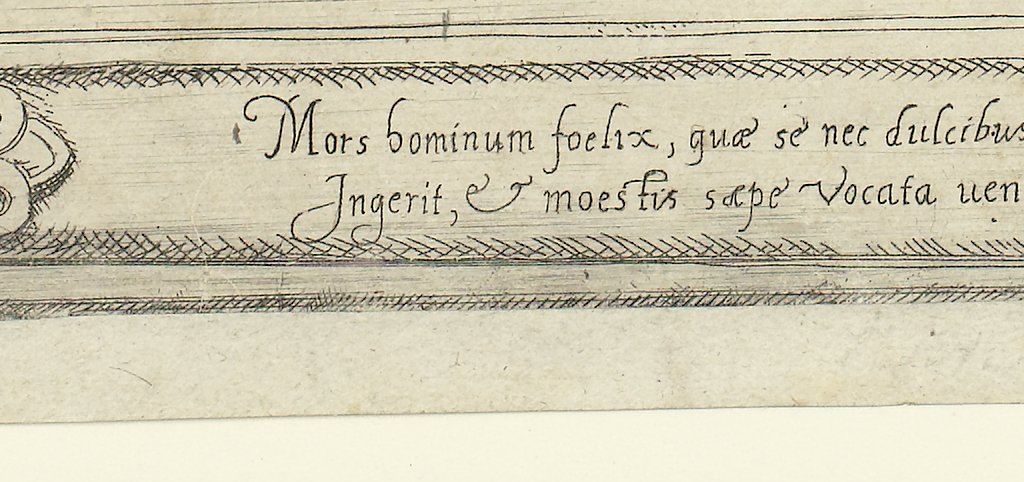 Mors hominum foelix, quæ se nec dulcibus
Ingerit, & moestis sæpe Vocata uen